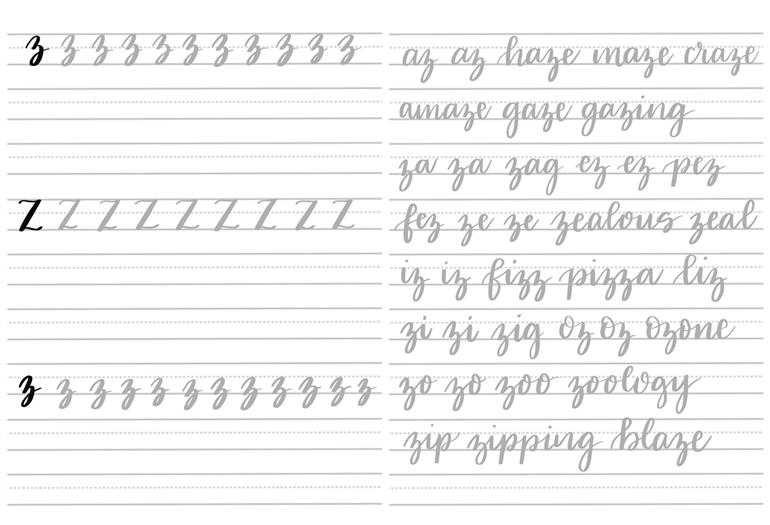 z z z z z z z z z z z
Z Z Z Z Z Z Z Z Z
z z z z z z z z z z z z
az az haze maze craze
amaze gaze gazing
za za zag ez ez pez
fez ze ze zealous zeal
iz iz fizz pizza liz
zi zi zig oz oz ozone
zo zo zoo zoology
zip zipping blaze